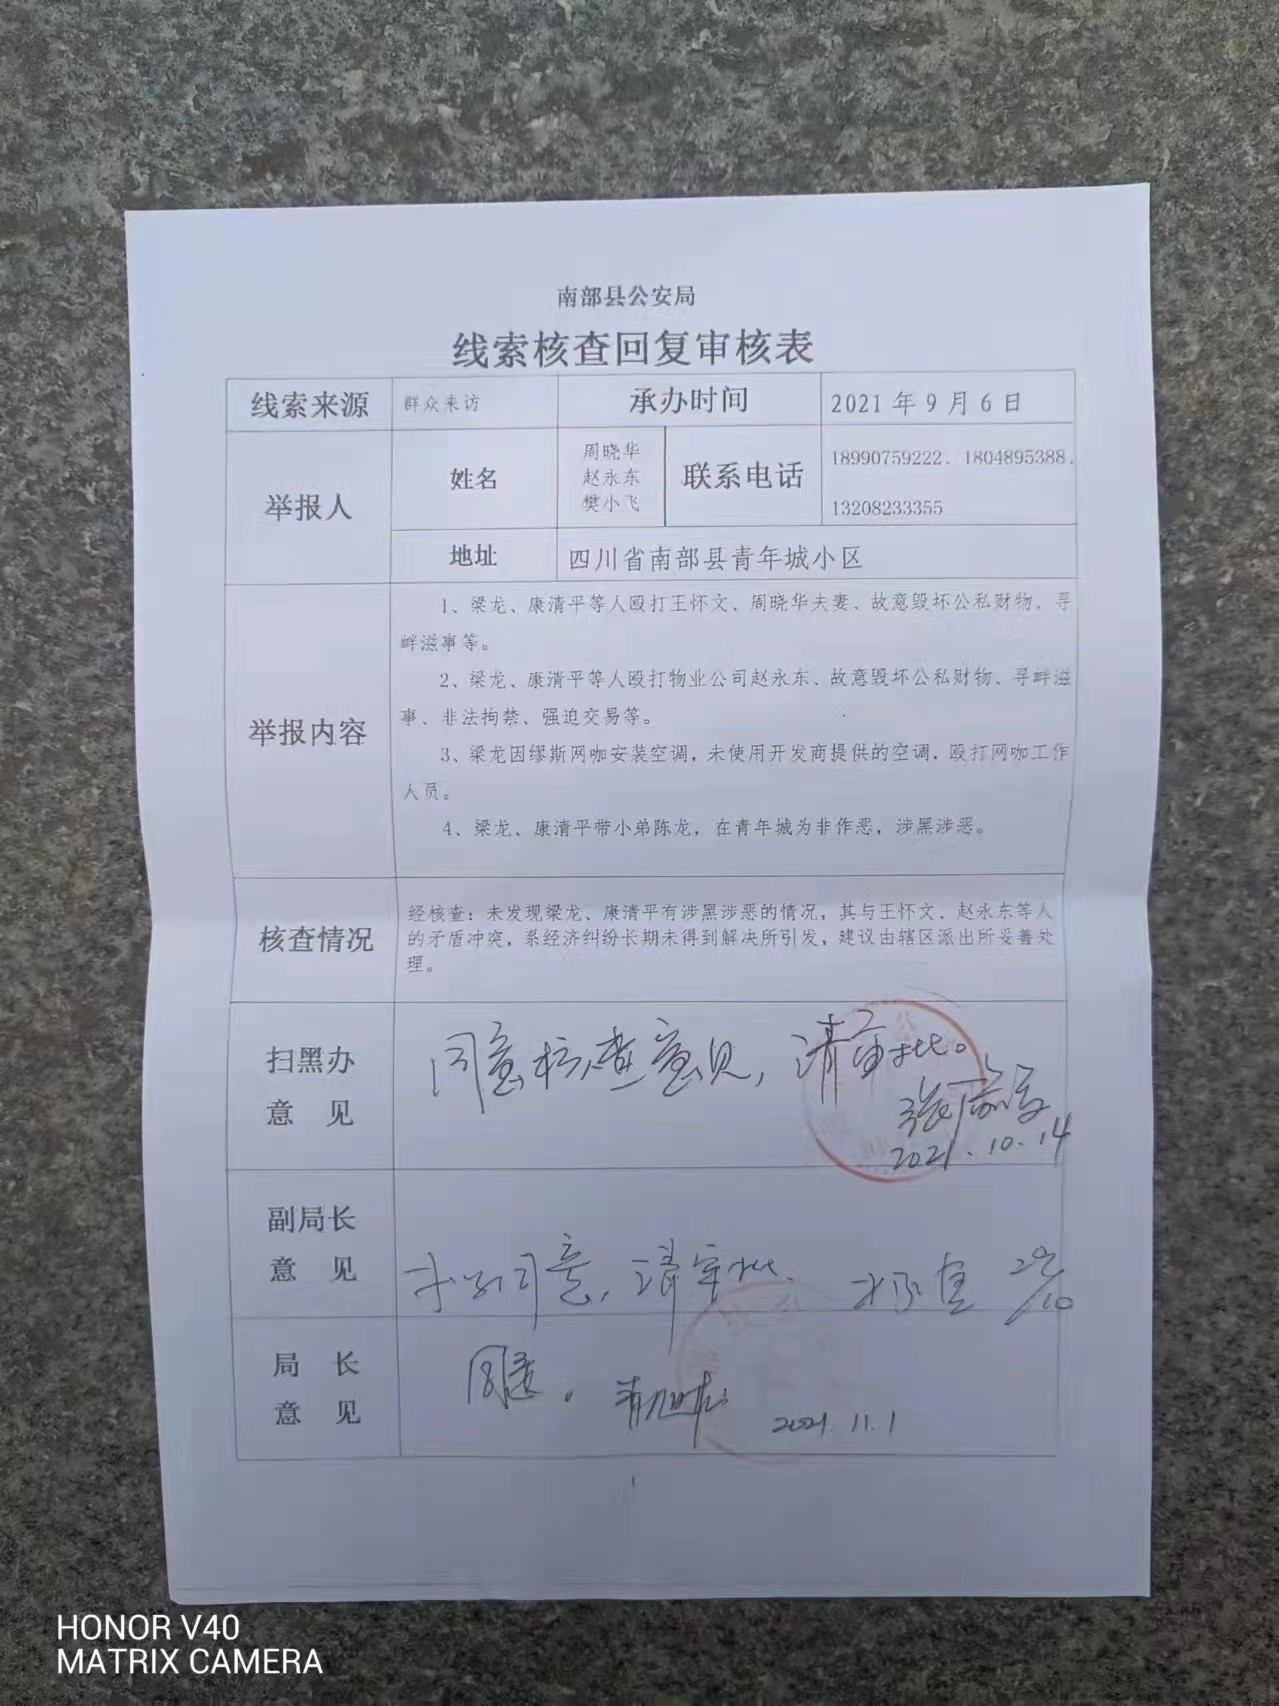 南部县公安局
线索核查回复审核表
线索来源 群众来访 承办时间 2021年9月6日
举报人 姓名 周晓华 赵永东 樊小飞 联系电话 18990759222、1804895388、
13208233355
地址 四川省南部县青年城小区
举报内容
1、梁龙、康清平等人殴打王怀文、周晓华夫妻、故意毁坏公私财物、寻
衅滋事等。
2、梁龙、康清平等人殴打物业公司赵永东、故意毁坏公私财物、寻衅滋
事、非法拘禁、强迫交易等。
3、梁龙因缪斯网咖安装空调，未使用开发商提供的空调，殴打网咖工作
人员。
4、梁龙、康清平带小弟陈龙，在青年城为非作恶，涉黑涉恶。
核查情况
经核查：未发现梁龙、康清平有涉黑涉恶的情况，其与王怀文、赵永东等人
的矛盾冲突，系经济纠纷长期未得到解决所引发，建议由辖区派出所妥善处
理。
扫黑办
意 见
同意核查意见，请审批。
2021.10.14
副局长
意 见
同意，请审批。
29/10
局 长
意 见
同意。
2021.11.1
1
HONOR V40
MATRIX CAMERA